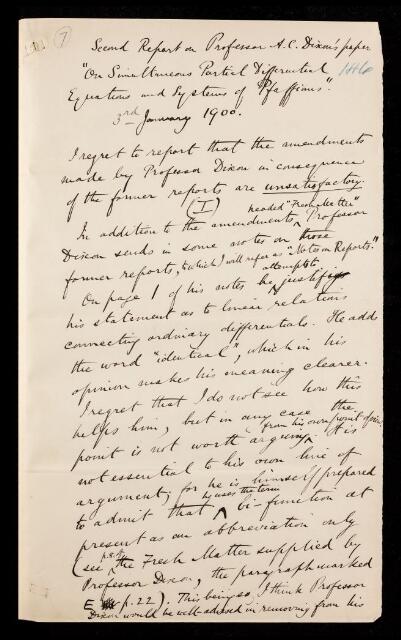 7
Second Report on Professor A.C. Dixon's paper
"On Simultaneous Partial Differential
Equations and Systems of Pfaffians".
3rd January 1900.
I regret to report that the amendments
made by Professor Dixon in consequence
of the former reports are unsatisfactory.
(I)
headed "Fresh Matter"
In addition to the amendments Professor
Dixon sends in some notes on those
former reports, to which I will refer as "Notes on Reports."
On page 1 of his notes he attempts to justify
his statement as to linear relations
connecting ordinary differentials. He adds
the word "identical", which in his
opinion makes his meaning clearer.
I regret that I do not see how this
helps him, but in any case the
point is not worth arguing from his own point of view. It is
not essential to his own line of
argument; for he is himself prepared
to admit that he uses the term bi-function at
present as an abbreviation only
(see p.8 of the Fresh Matter supplied by
Professor Dixon, the paragraph marked
E p.22). This being so, I think Professor
Dixon would be well-advised in removing from his